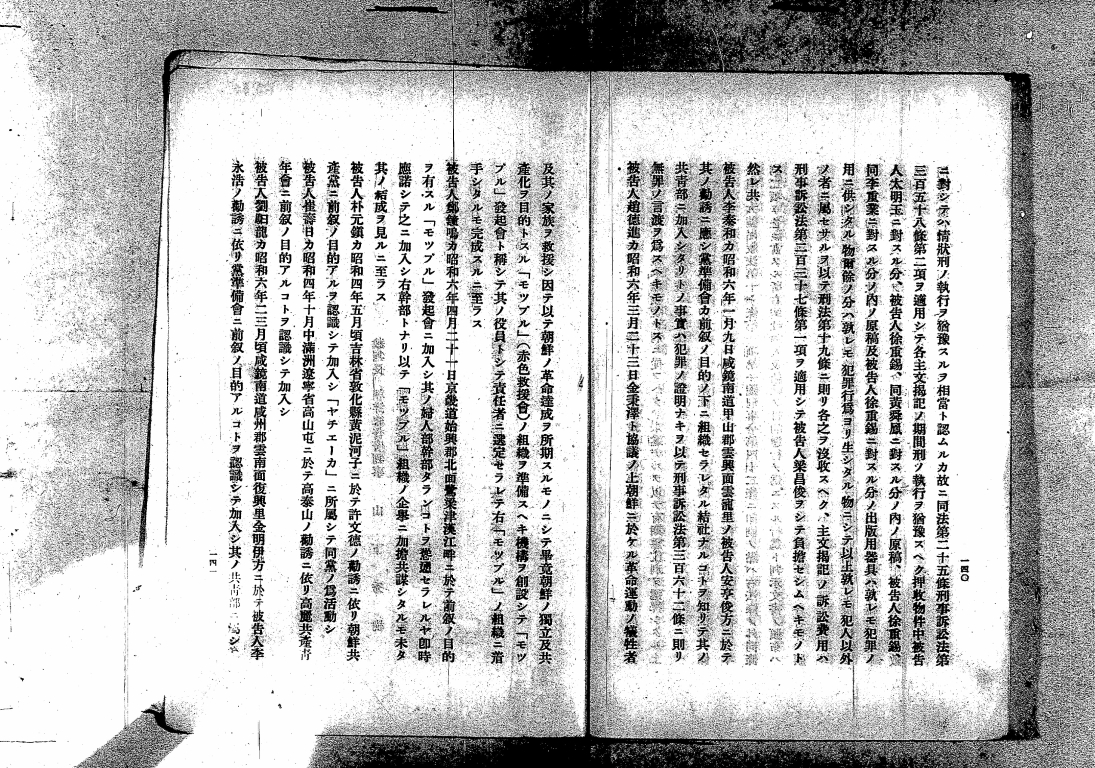 ニ對シテハ情狀刑ノ執行ヲ猶豫スルヲ相當ト認ムルカ故ニ同法第二十五條刑事訴訟法第
三百五十八條第二項ヲ適用シテ各主文揭記ノ期間刑ノ執行ヲ猶豫スヘク押收物件中被告
人太明玉ニ對スル分、被告人徐重錫、同黃舜鳳ニ對スル分ノ內ノ原稿、被告人徐重錫、
同李重業ニ對スル分ノ內ノ原稿及被告人徐重錫ニ對スル分ノ出版用器具ハ孰レモ犯罪ノ
用ニ供シタル物爾餘ノ分ハ孰レモ犯罪行爲ヨリ生シタル物ニシテ以上孰レモ犯人以外
ノ者ニ屬セサルヲ以テ刑法第十九條ニ則リ各之ヲ沒收スヘク、主文揭記ノ訴訟費用ハ
刑事訴訟法第二百三十七條第一項ヲ適用シテ被告人梁昌俊ヲシテ負擔セシムヘキモノト
ス
然レ共
被告人李奏和カ昭和六年一月九日咸鏡南道甲山郡雲興面雲龍里ノ被告人安亨俊方ニ於テ
其ノ勸誘ニ應シ黨準備會カ前叙ノ目的ノ下ニ組織セラレタル結社ナルコトヲ知リテ其ノ
共靑部ニ加入シタリトノ事實ハ犯罪ノ證明ナキヲ以テ刑事訴訟法第三百六十二條ニ則リ
無罪ノ言渡ヲ爲スヘキモノトス
被告人趙德進カ昭和六年三月二十三日金秉澤ト協議ノ上朝鮮ニ於ケル革命運動ノ犧牲者
一四〇
及其ノ家族ヲ救援シ因テ以テ朝鮮ノ革命達成ヲ所期スルモノニシテ畢竟朝鮮ノ獨立及共
產化ヲ目的トスル「モツプル」(赤色救援會)ノ組織ヲ準備スヘキ機構ヲ創設シテ「モツ
プル」發起會ト稱シテ其ノ役員トシテ責任者ニ選定セラレテ右「モツプル」ノ組織ニ着
手シタルモ完成スルニ至ラス
被告人鄭鍾鳴カ昭和六年四月二十一日京畿道始興郡北面鷺梁津漢江畔ニ於テ前叙ノ目的
ヲ有スル「モツプル」發起會ニ加入シ其ノ婦人部幹部タランコトヲ慫慂セラレルヤ卽時
應諾シテ之ニ加入シ右幹部トナリ以テ「モツプル」組織ノ企畢ニ加擔共謀シタルモ未タ
其ノ結成ヲ見ルニ至ラス
被告人朴元鎭カ昭和四年五月頃吉林省敦化縣黃泥河子ニ於テ許文德ノ勸誘ニ依リ朝鮮共
產黨ニ前叙ノ目的アルヲ認識シテ加入シ「ヤチエーカ」ニ所屬シテ同黨ノ爲活動シ
被告人崔壽日カ昭和四年十月中滿洲遼寧省高山屯ニ於テ高泰山ノ勸誘ニ依リ高麗共產靑
年會ニ前叙ノ目的アルコトヲ認識シテ加入シ
被告人劉昭龍カ昭和六年二三月頃咸鏡南道咸州郡雲南面復興里金明伊方ニ於テ被告人李
永浩ノ勸誘ニ依リ黨準備會ニ前叙ノ目的アルコトヲ認識シテ加入シ其ノ共靑部
一四一